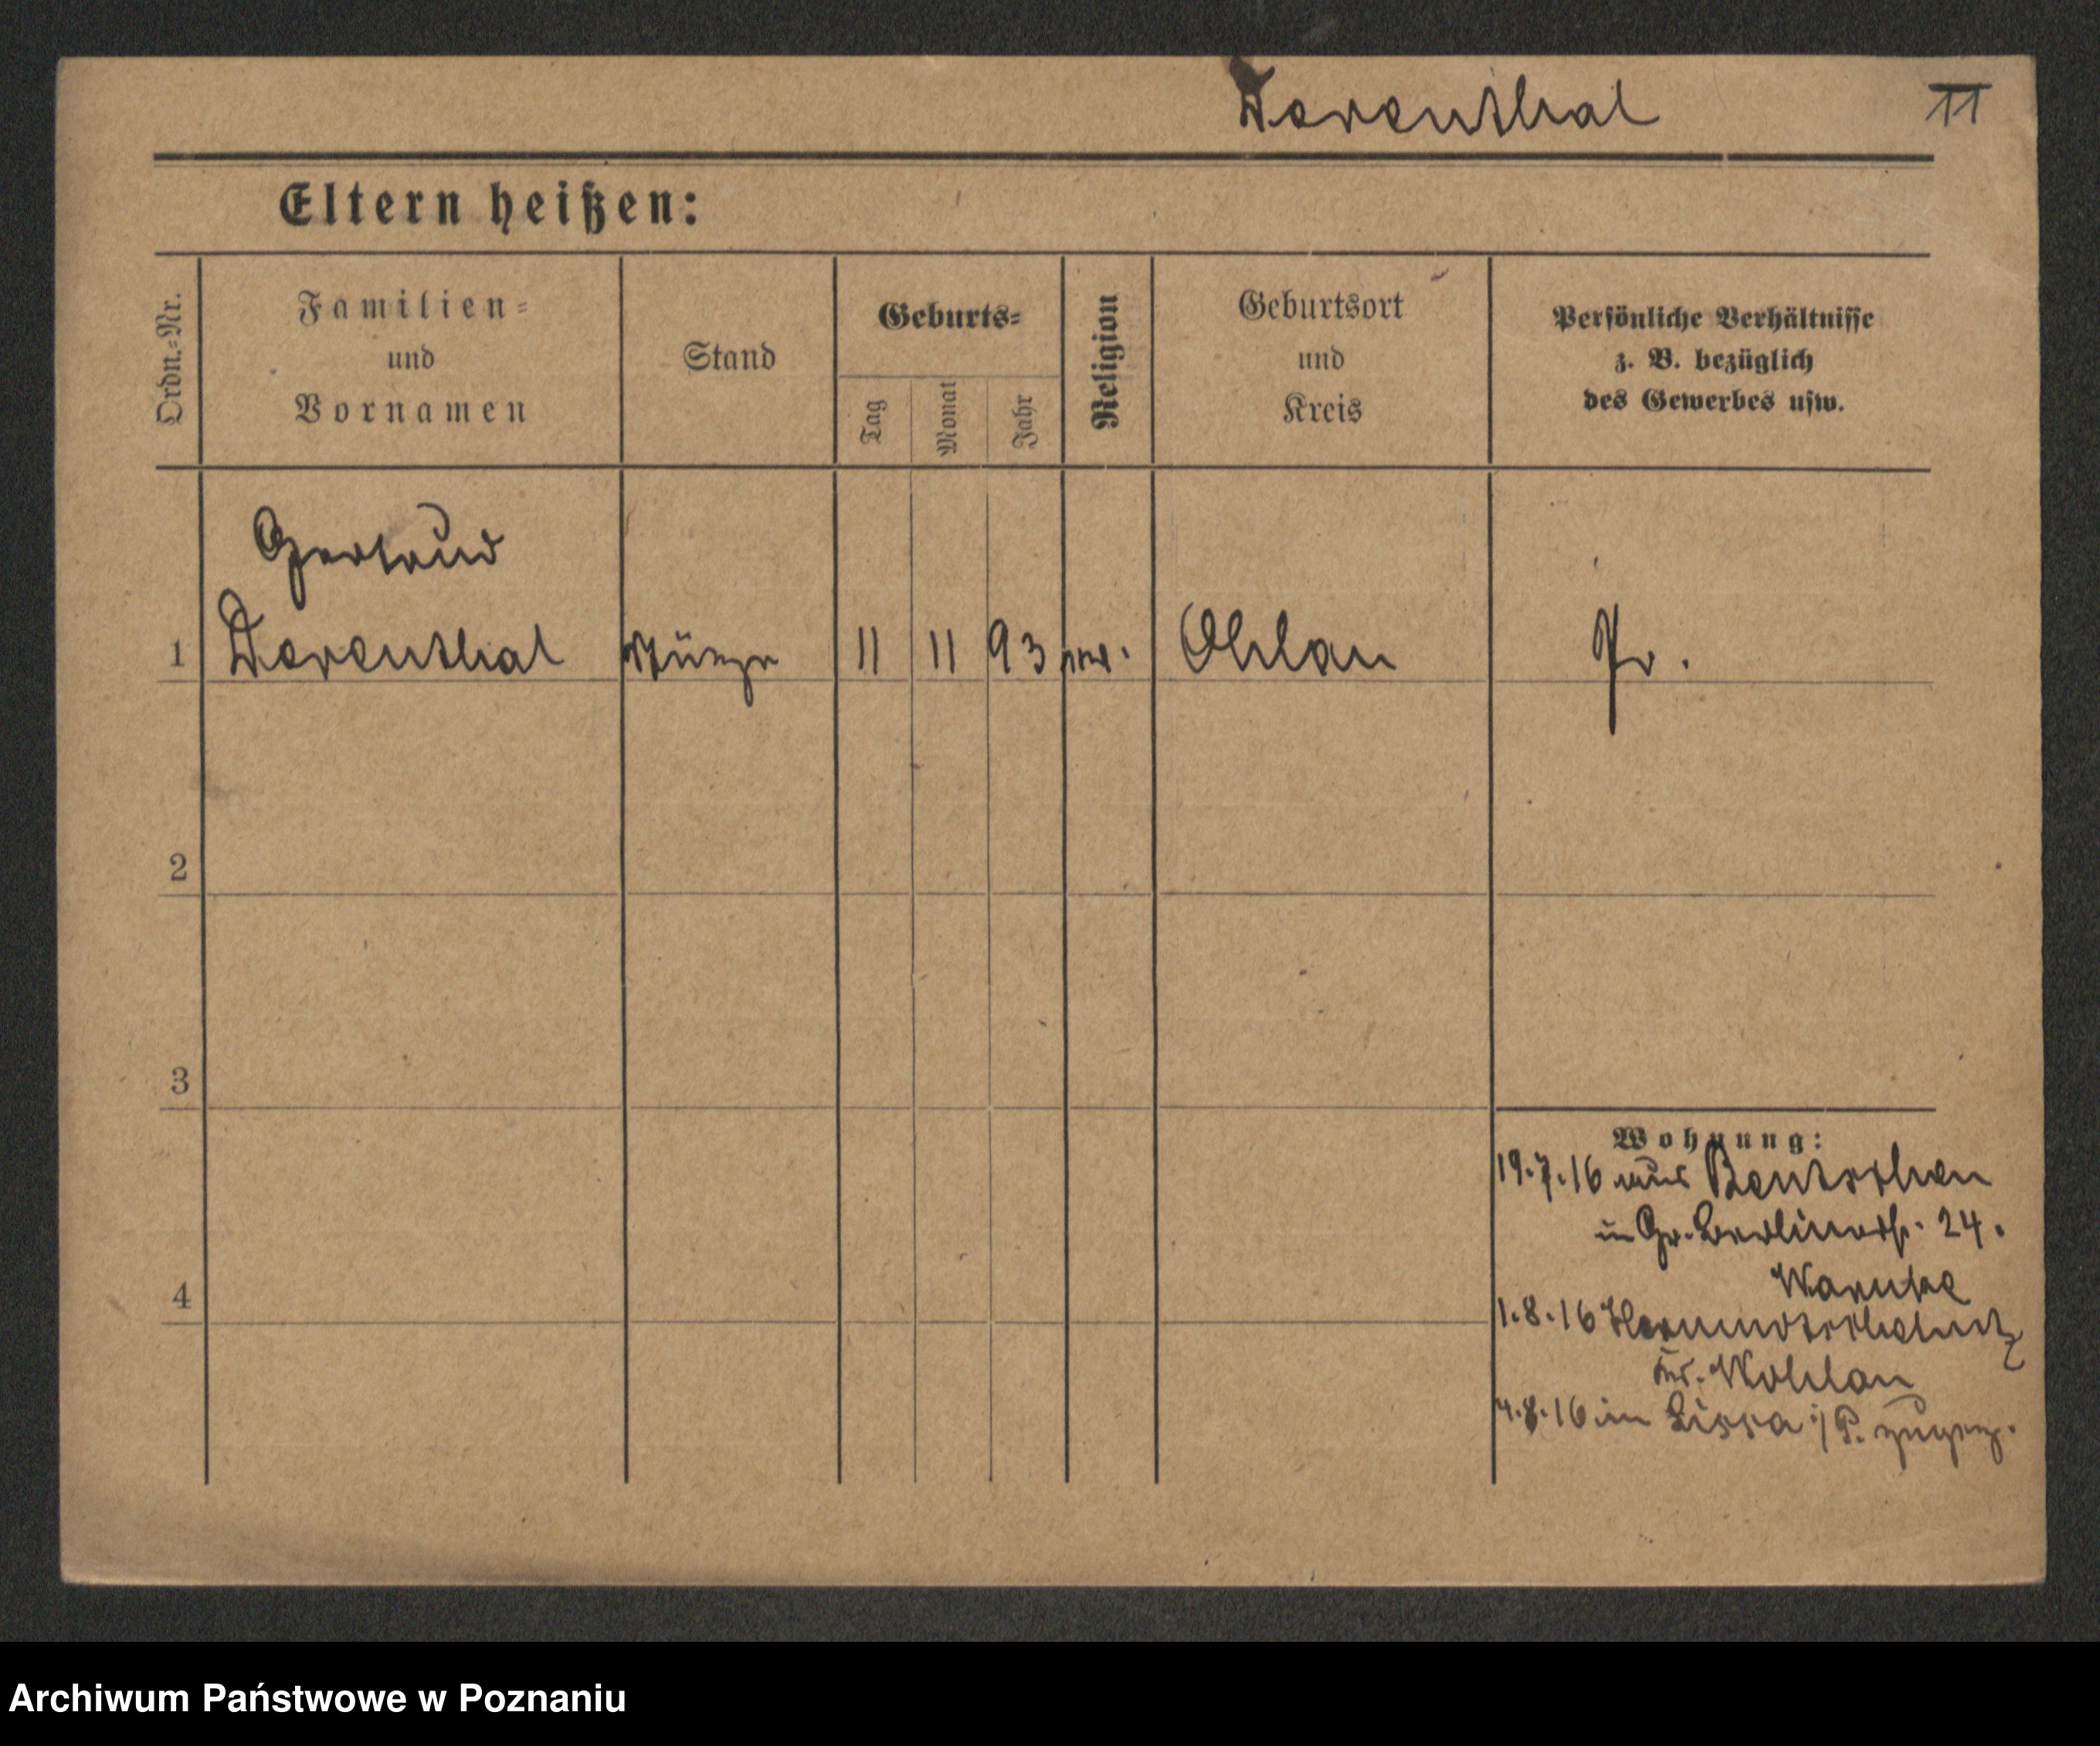 Derenthal 11
Eltern heißen:
Ordn.=Nr.
Familien=
und
Vornamen
Stand
Geburts=
Tag
Monat
Jahr
Religion
Geburtsort
und
Kreis
Persönliche Verhältnisse
z. B. bezüglich
des Gewerbes usw.
Gertrud
1 Derenthal Stütze 11 11 93 ev. Ohlau Pr.
2
3
4
Wohnung:
19.7.16 aus Bentschen
in Gr. Berlinerstr. 24.
Warnke
1.8.16
Kr. Wohlau
4.8.16 in Lissa i/P. zugez.
Archiwum Państwowe w Poznaniu